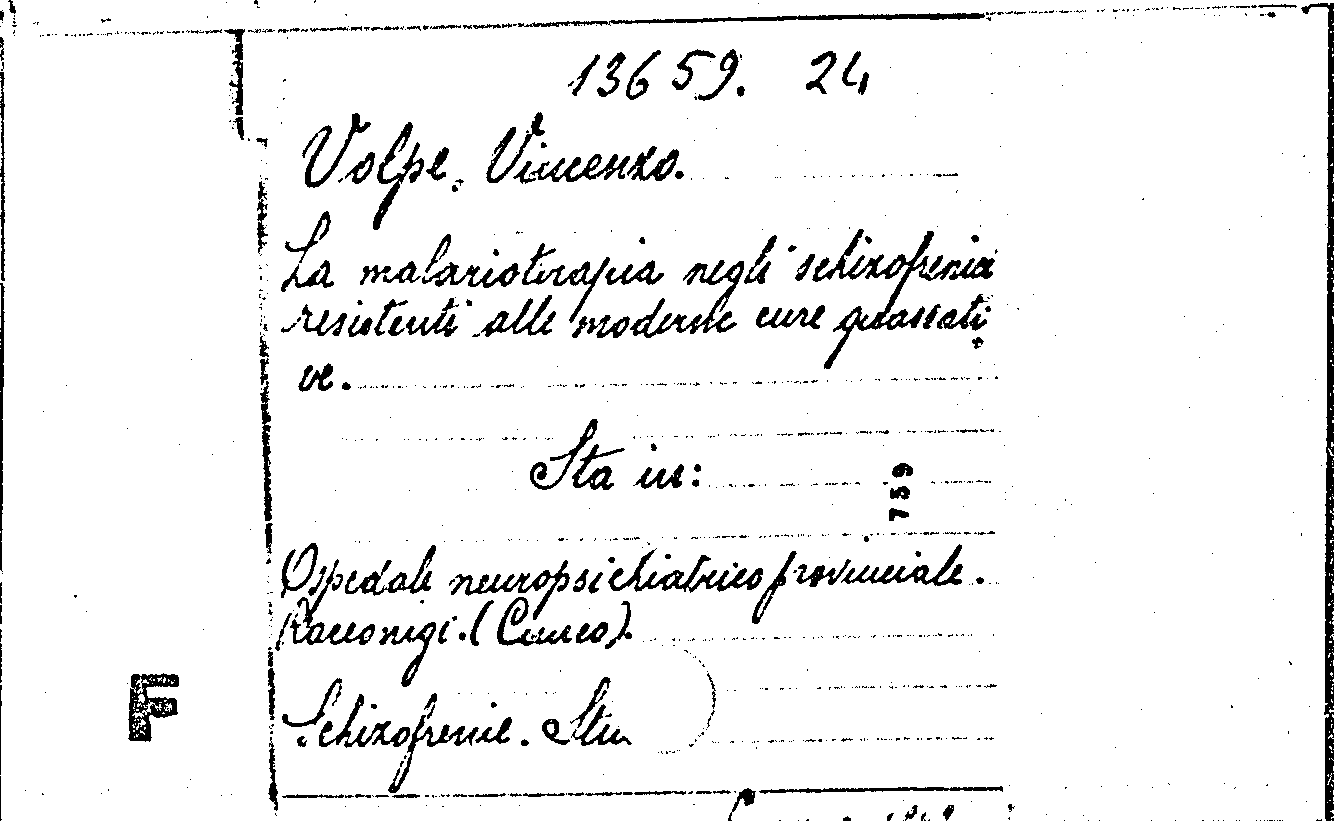 13659. 24
Volpe. Vincenzo.
La malarioterapia negli schizofrenici
resistenti alle moderne cure quassati
ve.
Sta in:
759
Ospedale neuropsichiatrico provinciale.
Racconigi. (Cuneo).
F
Schizofrenie. Stu